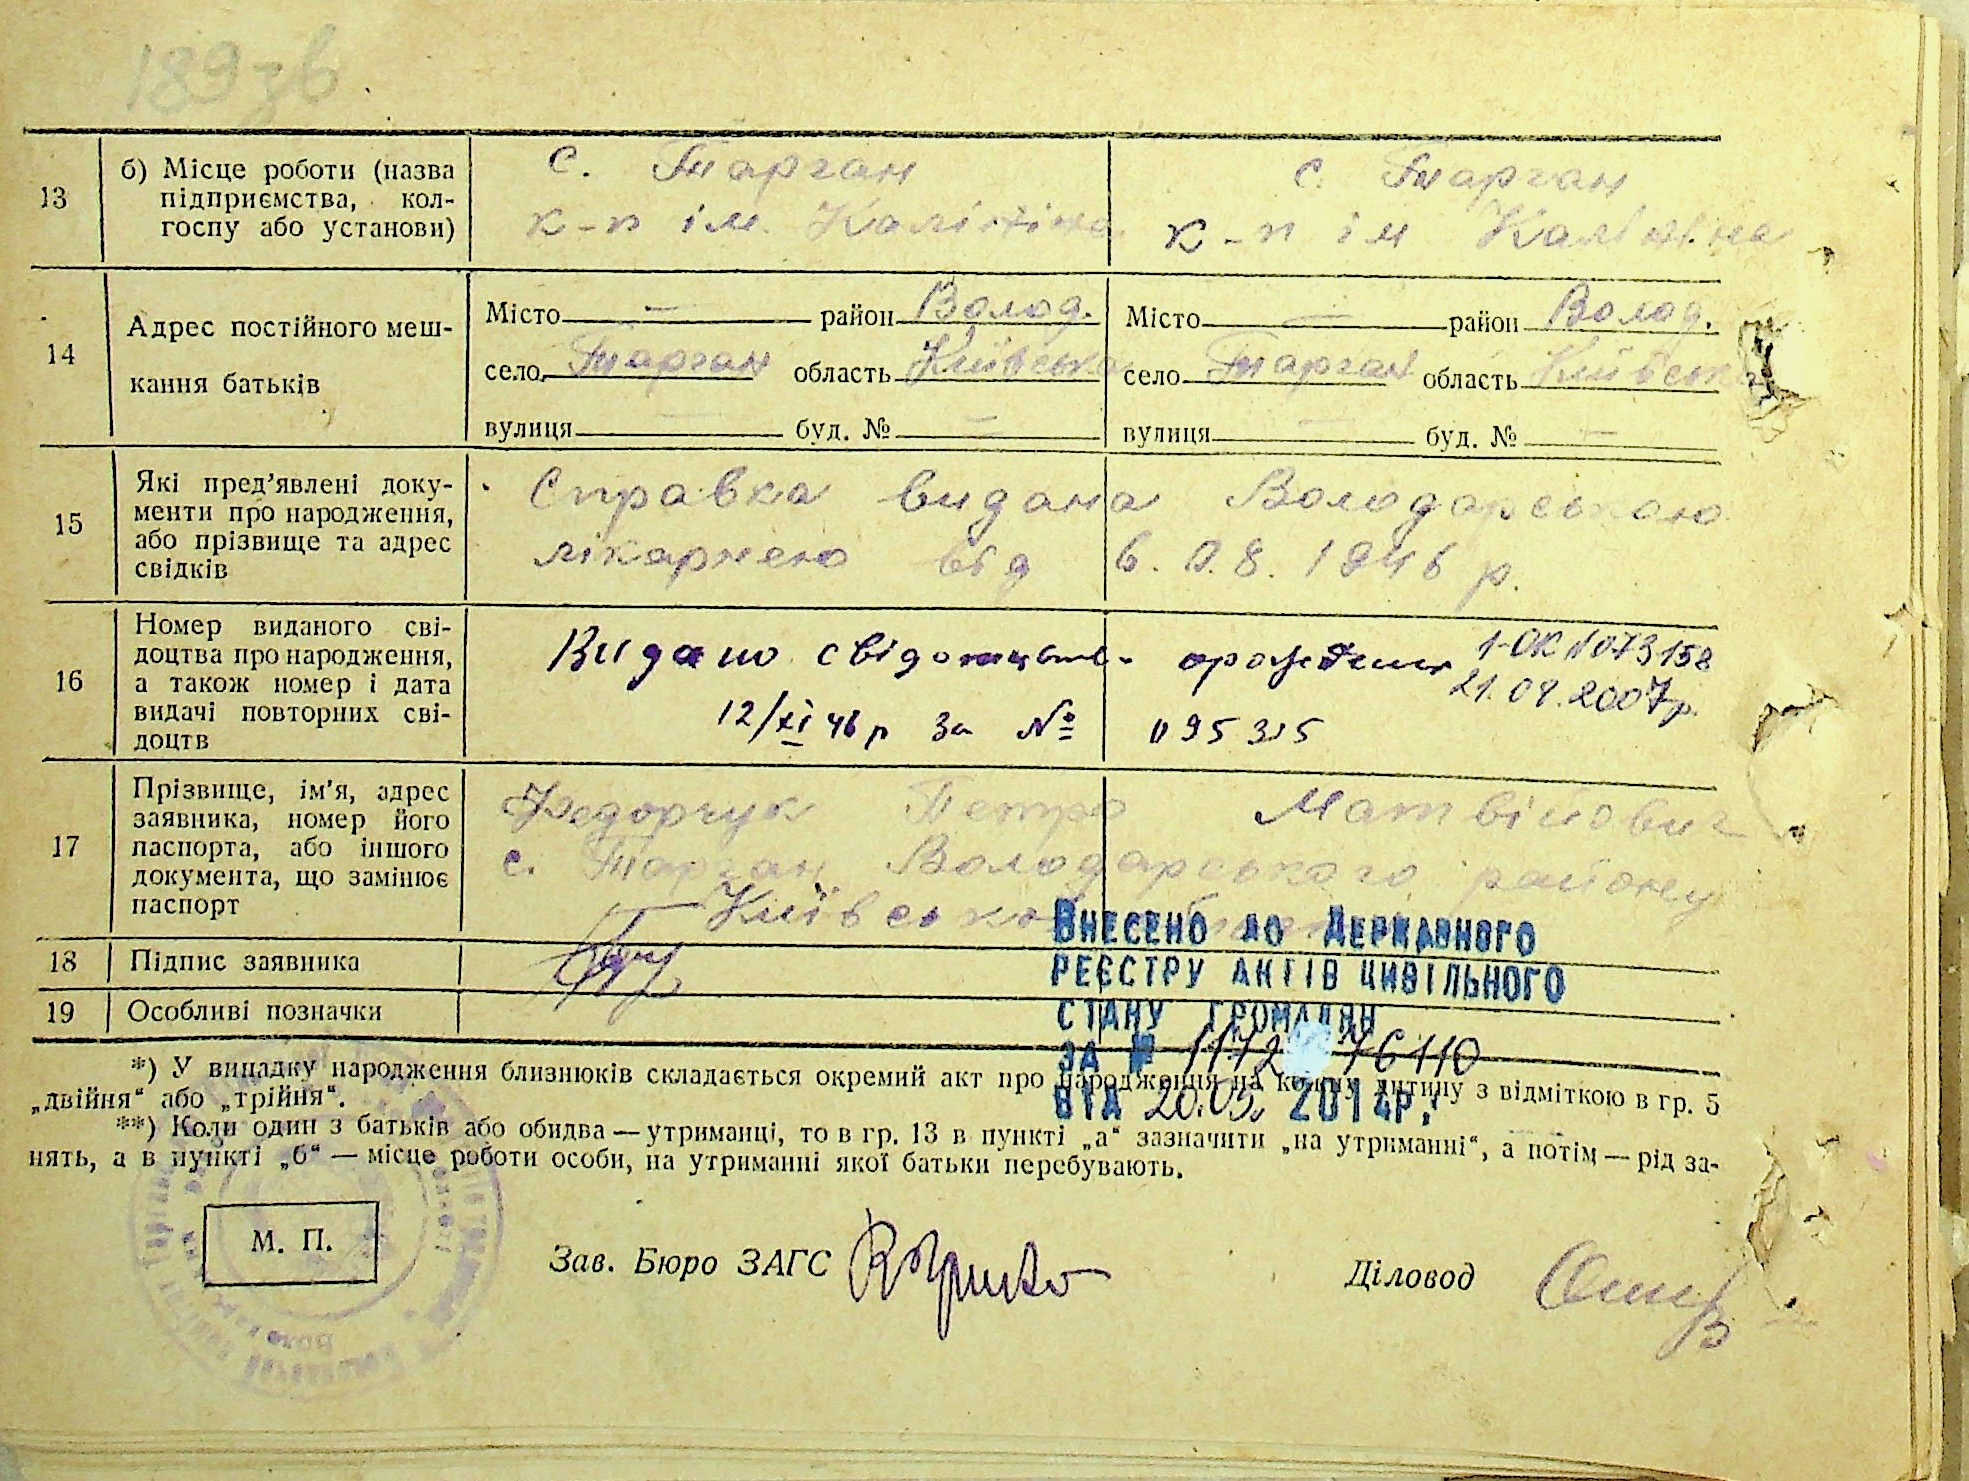 189зв
13
б) Місце роботи (назва
підприємства, кол-
госпу або установи)
с. Тарган
к-п ім. Калініна
с. Тарган
к-п ім Калініна
14
Адрес постійного меш-
кання батьків
Місто — район Волод.
село Тарган область Київська
вулиця — буд. № —
Місто — район Волод.
село Тарган область Київська
вулиця — буд. № —
15
Які пред’явлені доку-
менти про народження,
або прізвище та адрес
свідків
Справка видана Володарською
лікарнею від 6. 0.8. 1946 р.
16
Номер виданого сві-
доцтва про народження,
а також номер і дата
видачі повторних сві-
доцтв
Видано
12/XI 46 р за № 095315
1-ОК №073158
21.09.2007р.
17
Прізвище, ім’я, адрес
заявника, номер його
паспорта, або іншого
документа, що замінює
паспорт
Федорчук Петро Матвійович
с. Тарган Володарського району
Київської
18
Підпис заявника
19
Особливі позначки
Внесено до Державного
реєстру актів цивільного
стану громадян
за № 1172 76110
від 20.05. 2014р.
*) У випадку народження близнюків складається окремий акт про народження на кожну дитину з відміткою в гр. 5
„двійня“ або „трійня“.
**) Коли один з батьків або обидва — утриманці, то в гр. 13 в пункті „а“ зазначити „на утриманні“, а потім — рід за-
нять, а в пункті „б“ — місце роботи особи, на утриманні якої батьки перебувають.
М. П.
Зав. Бюро ЗАГС
Діловод